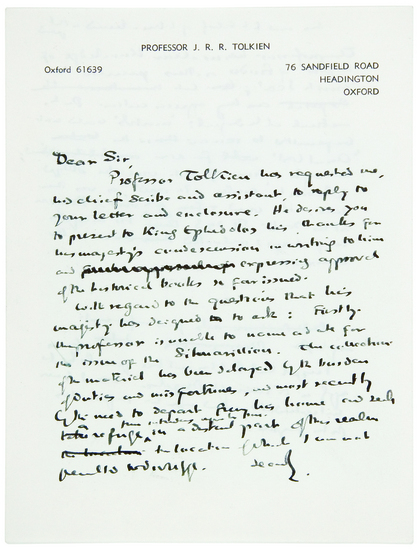 PROFESSOR J. R. R. TOLKIEN
Oxford 61639
76 SANDFIELD ROAD
HEADINGTON
OXFORD
Dear Sir,
Professor Tolkien has requested me,
his chief scribe and assistant, to reply to
your letter and enclosure. He desires you
to present to King Ephidolos his thanks for
his majesty's condescension in writing to him
and expressing approval
of the historical books so far issued.
With regard to the questions that his
majesty has deigned to ask: Firstly.
the professor is unable to name a date for
the issue of the Silmarillion. The collection
of the material has been delayed by the burden
of duties and misfortunes, and most recently
by the need to depart from his home and seek
refuge in a distant part of this realm
the location of which I am not
permitted to divulge.